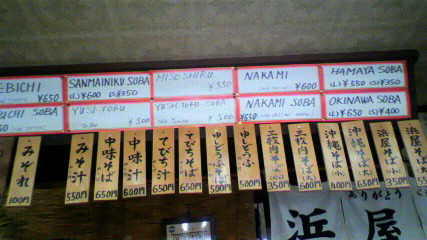 EBICHI
¥650
SANMAINIKU SOBA
(L) ¥600 (S) ¥350
MISOSHIRU
¥550
NAKAMI
¥600
HAMAYA SOBA
(L) ¥550 (S) ¥350
BICHI SOBA
YUSI TOFU
¥500
YUSHI TOFU SOBA
¥500
NAKAMI SOBA
¥650
OKINAWA SOBA
(L) ¥650 (S) ¥400
みぞれ
100円
みそ汁
550円
中味そば
650円
中味汁
600円
てびち汁
650円
てびちそば
650円
ゆしどうふそば
500円
ゆしどうふ
500円
三枚肉そば(小)
350円
三枚肉そば(大)
600円
沖縄そば(小)
400円
沖縄そば(大)
650円
浜屋そば(小)
350円
浜屋そば(大)
ありがとう
浜屋